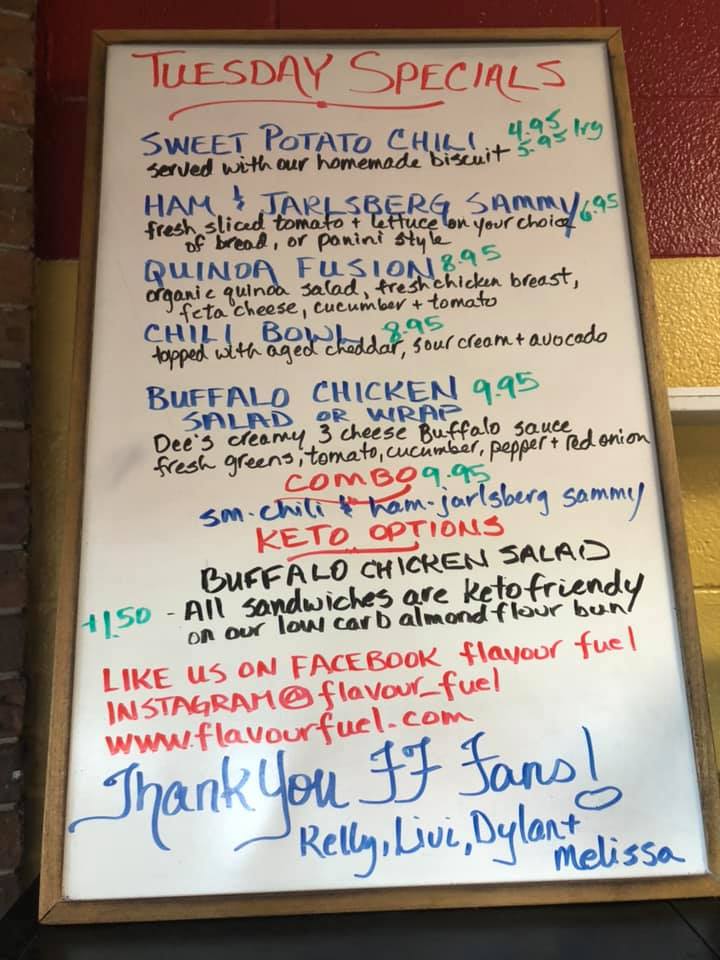 TUESDAY SPECIALS
SWEET POTATO CHILI 4.95
served with our homemade biscuit 5.95 lrg
HAM & JARLSBERG SAMMY 6.95
fresh sliced tomato + lettuce on your choice
of bread, or panini style
QUINOA FUSION 8.95
organic quinoa salad, fresh chicken breast,
feta cheese, cucumber + tomato
CHILI BOWL 8.95
topped with aged cheddar, sour cream + avocado
BUFFALO CHICKEN 9.95
SALAD OR WRAP
Dee's creamy 3 cheese Buffalo sauce
fresh greens, tomato, cucumber, pepper + red onion
COMBO 9.95
sm-chili & ham-jarlsberg sammy
KETO OPTIONS
BUFFALO CHICKEN SALAD
+1.50 - All sandwiches are keto friendly
on our low carb almond flour bun
LIKE US ON FACEBOOK flavour fuel
INSTAGRAM @flavour_fuel
www.flavourfuel.com
Thank You FF Fans!
Kelly, Livi, Dylan +
Melissa